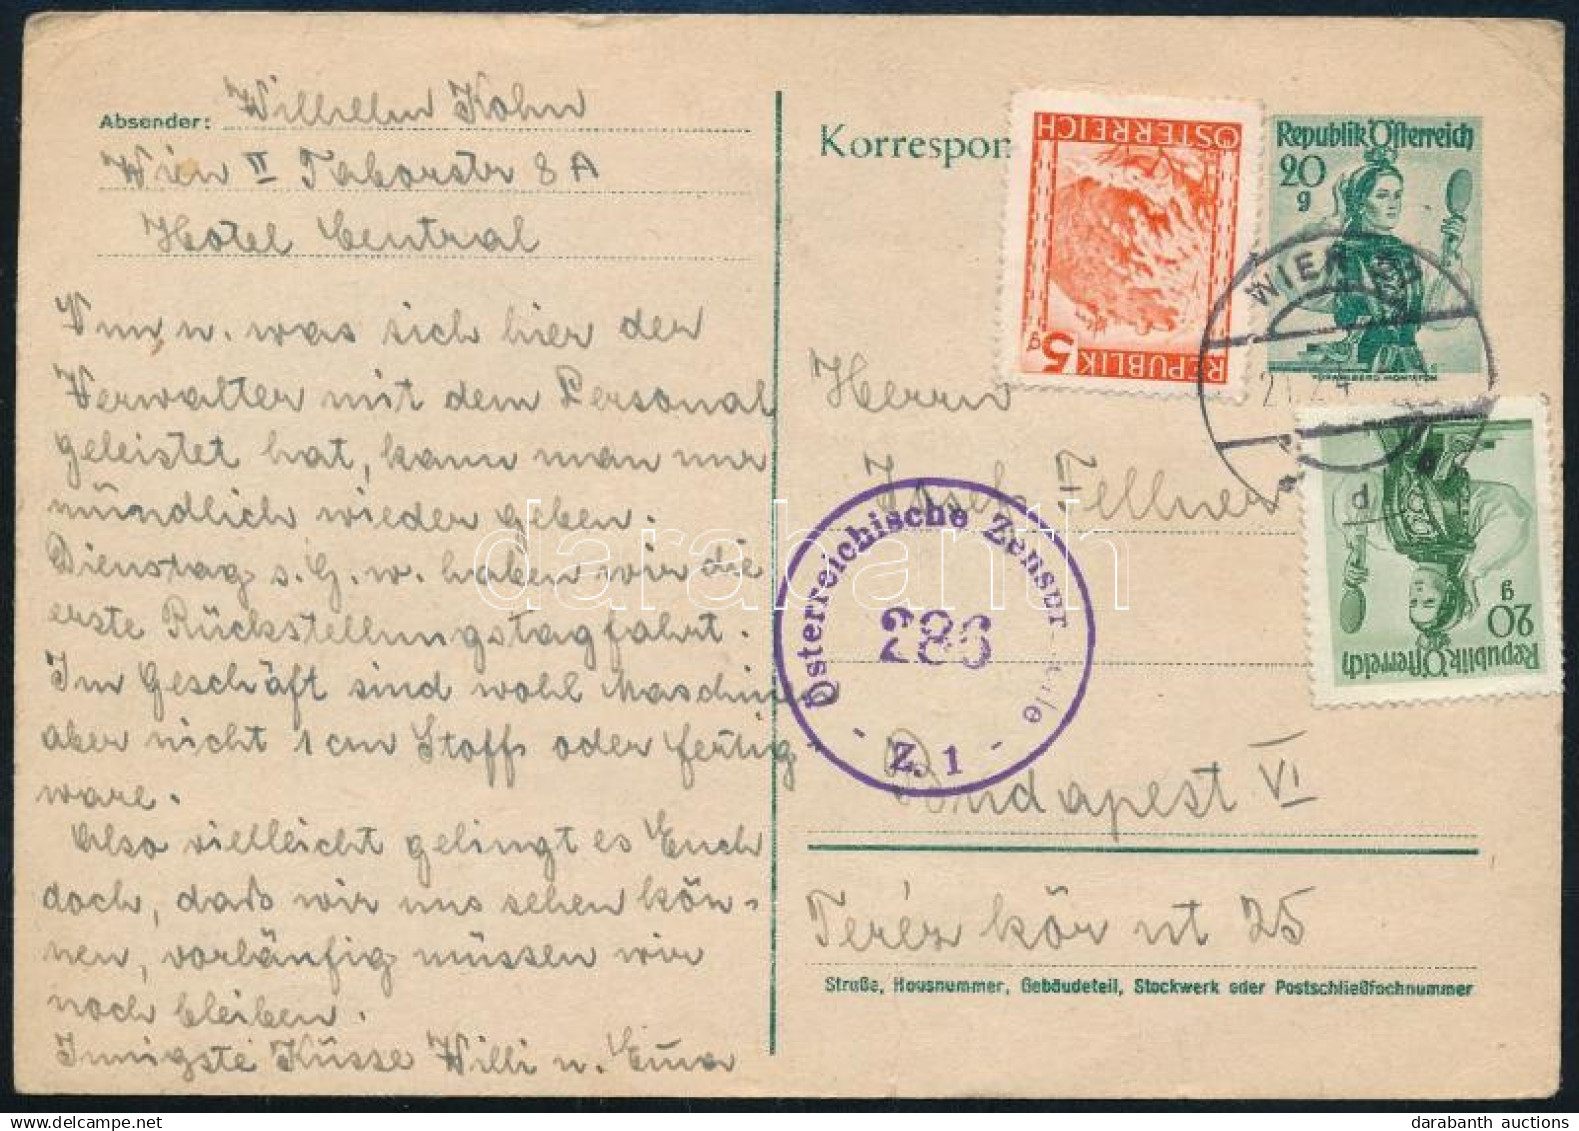 Absender: Wilhelm Kohn
Wien II Taborstr 8 A
Hotel Central
u. was sich hier der
Verwalter mit dem Personal
geleistet hat, kann man nur
mündlich wieder geben.
Dienstag s. G. w. haben wir die
erste Rückstellungstagfahrt.
Im Geschäft sind wohl Maschinen
aber nicht 1 cm Stoff oder fertig
ware.
Also vielleicht gelingt es Euch
doch, daß wir uns sehen kön-
nen, vorläufig müssen wir
noch bleiben.
Innigste Küsse Willi u. Erna
Korrespon
ÖSTERREICH
5 g
REPUBLIK
Republik Österreich
20
g
WIEN
Herrn
Josef Fellner
Österreichische Zensurstelle
286
- Z. 1 -
Republik Österreich
20
g
d
Budapest VI
Teréz kör ut 25
Straße, Hausnummer, Gebäudeteil, Stockwerk oder Postschließfachnummer
darabanth
darabanth auctions